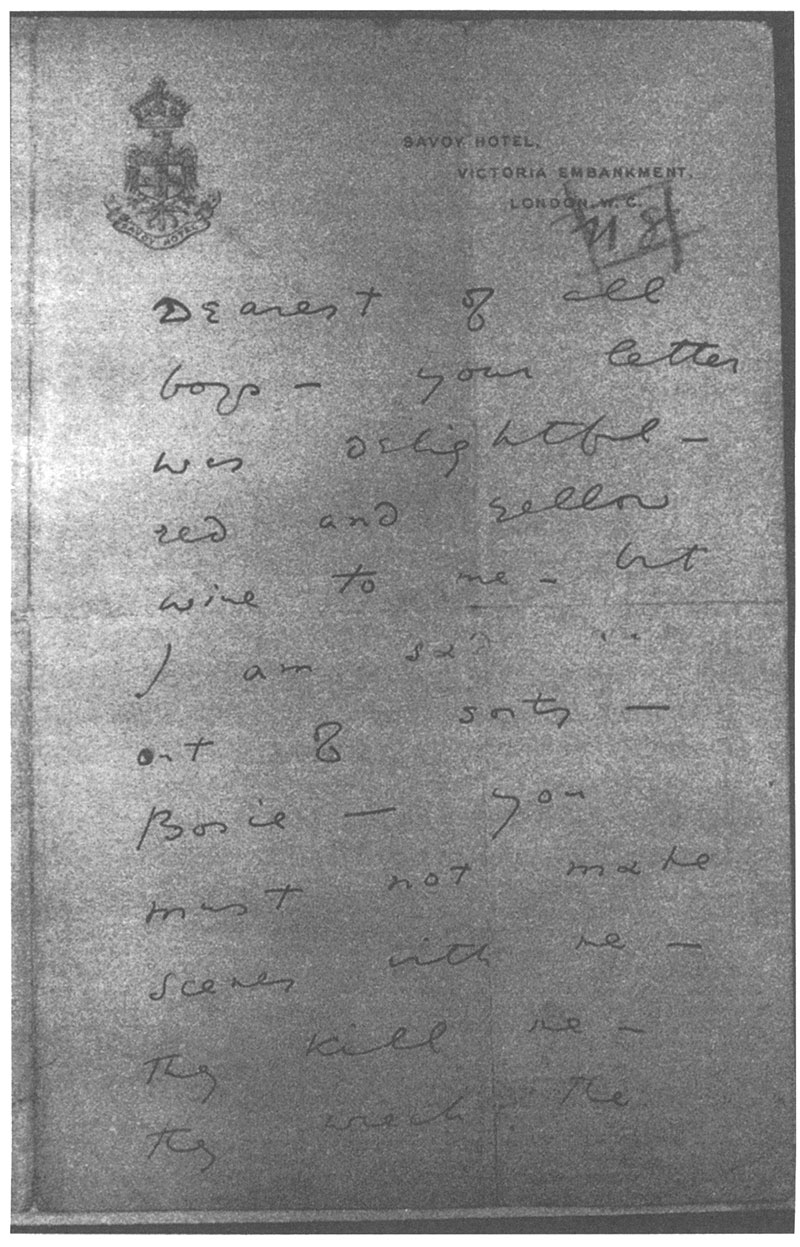 SAVOY HOTEL,
VICTORIA EMBANKMENT,
LONDON, W. C.
SAVOY HOTEL
Dearest of all
boys – your letter
was delightful –
red and yellow
wine to me – but
I am sad
out of sorts –
Bosie – you
must not make
scenes with me –
they kill me –
they wreck the